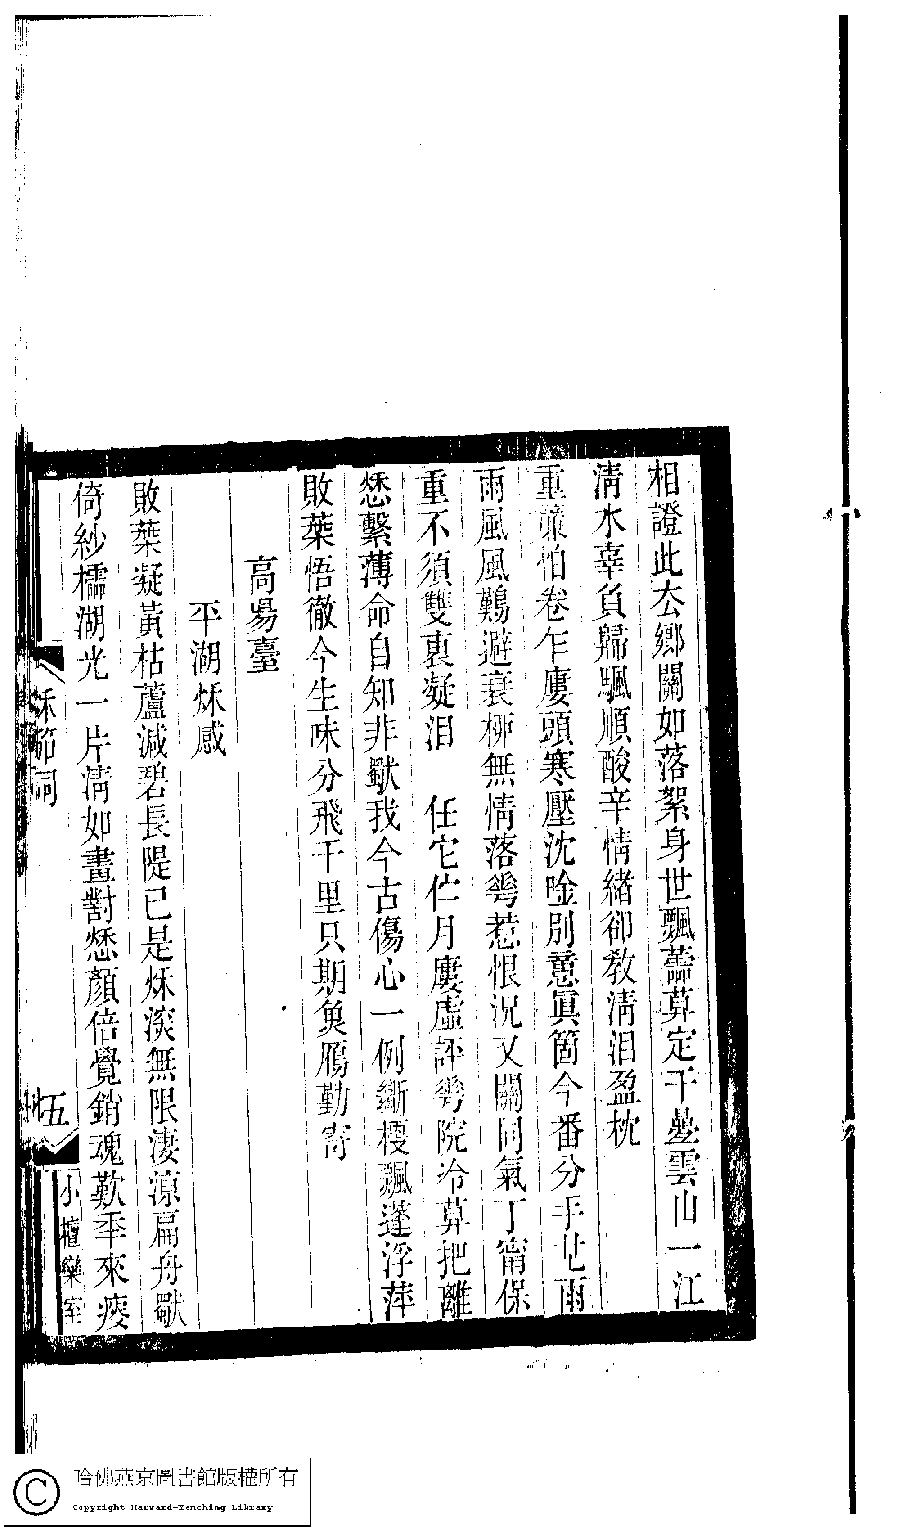 相證此厺鄉關如落絮身世飄蓬算定千疊雲山一江
淸水辜負歸颿順酸辛情緖卻敎淸泪盈枕
重簾怕卷乍廔頭寒壓沈陰別意眞箇今番分手也雨
雨風風難避衰桺無情落蕐惹恨況又關同氣丁甯保
重不須雙袖凝泪　任它伫月廔虛評蕐院冷算把離
愁繫薄命自知非獸我今古傷心一例斷梗飄蓬浮萍
敗葉悟徹今生味分飛千里只期奠鴈勤寄
高昜臺
平湖秌感
敗葉凝黃枯蘆減碧長隄已是秌深無限淒涼扁舟獸
倚紗櫺湖光一片淸如畫對愁顏倍覺銷魂歎年來瘦
秌笳詞
五
小檀欒室
哈佛燕京圖書館版權所有
Copyright Harvard-Yenching Library